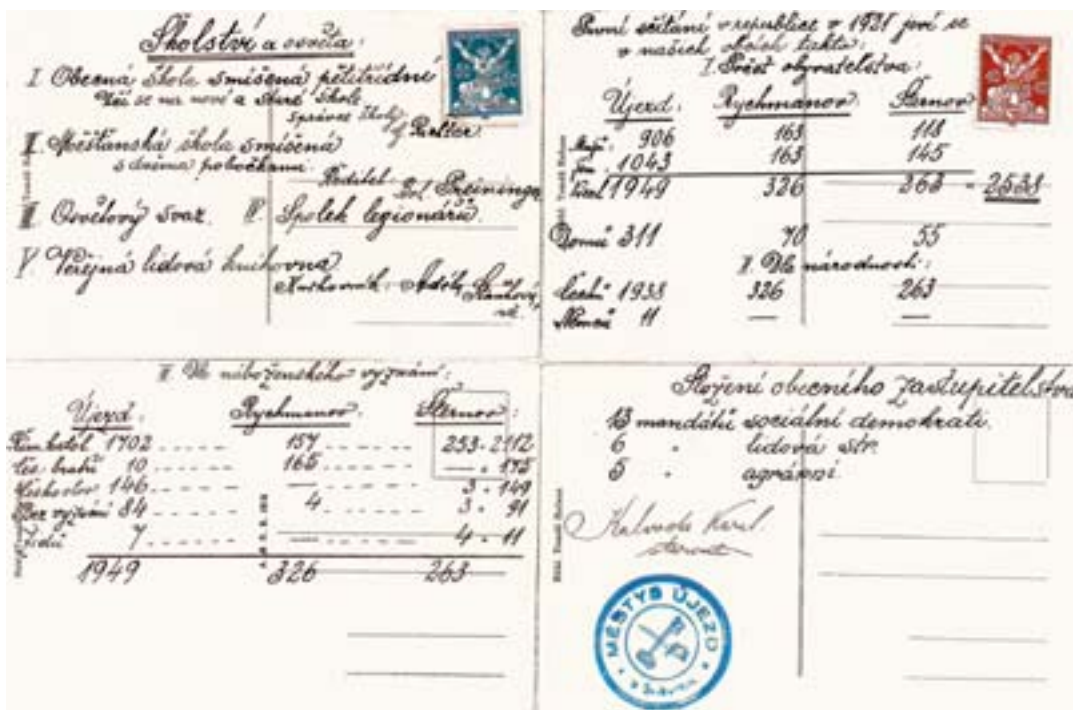 Školství a osvěta:
I. Obecná škola smíšená pětitřídní
Učí se na nové a staré škole
správce školy
II. Měšťanská škola smíšená
s dvěma pobočkami.
Ředitel Preininger
III. Osvětový svaz. IV. Spolek legionářů.
V. Veřejná lidová knihovna
Knihovník: Adolf
První sčítání v republice v 1921 jeví se
v našich obcích takto:
I. Počet obyvatelstva:
Újezd: Rychmanov: Šternov:
Mužů: 906 163 118
Žen: 1043 163 145
1949 326 263 - 2538
Domů 311 70 55
II. Dle národnosti:
Čechů 1938 326 263
Němců 11 — —
II. Dle náboženského vyznání:
Újezd: Rychmanov: Šternov:
Řím. katol 1702 157 253 - 2112
Čes. bratří 10 165 — - 175
146 — 3 - 149
Bez vyznání 84 4 3 - 91
Židů 7 4 - 11
1949 326 263
Složení obecního zastupitelstva
13 mandátů sociální demokrati.
6 " lidová str.
5 " agrární.
Kalvoda Karel.
starosta
MĚSTYS ÚJEZD